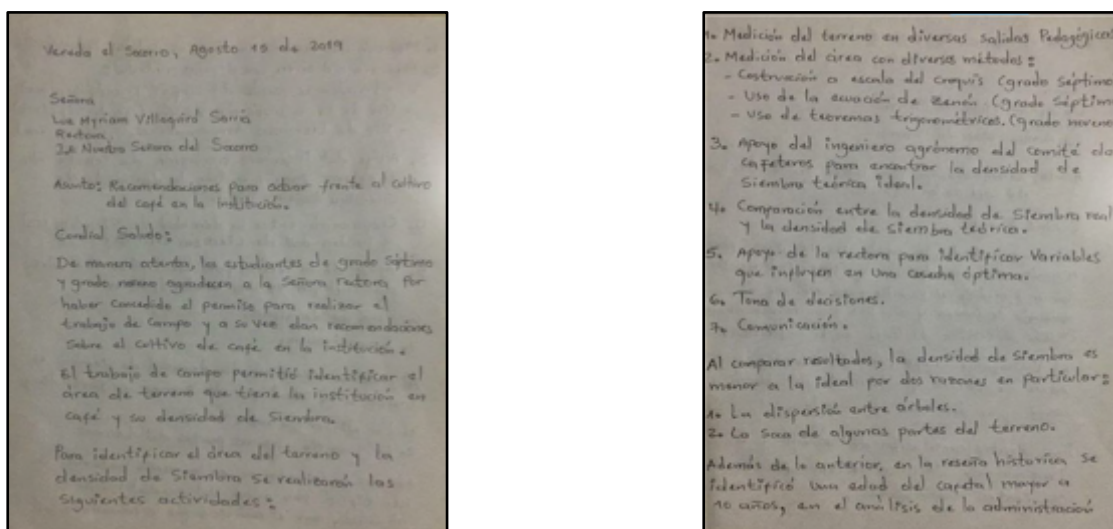 Vereda el Socorro, Agosto 15 de 2019
Señora
Luz Myriam Villaquirá
Rectora
I.E Nuestra Señora del Socorro
Asunto: Recomendaciones para actuar frente al cultivo
del café en la institución.
Cordial Saludo:
De manera atenta, los estudiantes de grado Séptimo
y grado noveno agradecen a la Señora rectora Por
haber Concedido el permiso para realizar el
trabajo de Campo y a su vez dan recomendaciones
Sobre el cultivo de café en la institución.
El trabajo de campo permitió identificar el
área de terreno que tiene la institución en
café y su densidad de Siembra.
Para identificar el área del terreno y la
densidad de Siembra se realizarón las
siguientes actividades:
1. Medición del terreno en diversas salidas Pedagógicas
2. Medición del área con diversos métodos:
- Costrucción a escala del croquis (grado Séptimo
- Uso de la ecuación de Zenón (grado Séptimo
- Uso de teoremas trigonométricos. (grado noveno
3. Apoyo del ingeniero agrónomo del comité de
cafeteros para encontrar la densidad de
Siembra teórica ideal.
4. Comparación entre la densidad de Siembra real
y la densidad de siembra teórica.
5. Apoyo de la rectora para identificar Variables
que influyen en una cosecha óptima.
6. Toma de decisiones.
7. Comunicación.
Al comparar resultados, la densidad de Siembra es
menor a la ideal por dos razones en particular:
1. La dispersión entre árboles.
2. La Soca de algunas partes del terreno.
Además de lo anterior, en la reseña historica se
identificó una edad del cafetal mayor a
10 años, en el análisis de la administración